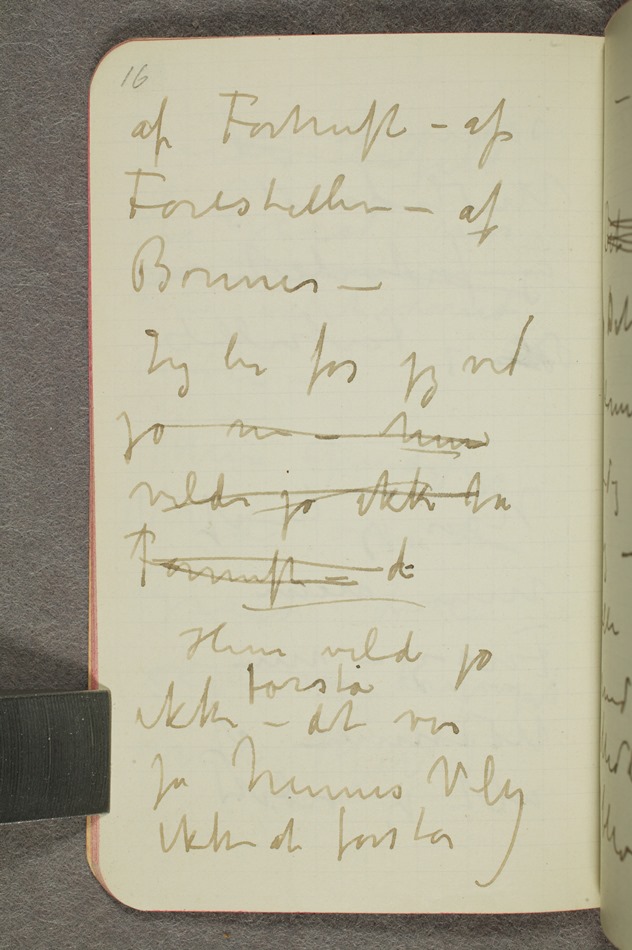 16
af Fornuft – af
Forestillen – af
Bønner –
Jeg ler for jeg ved
jo nu – hun
vilde jo ikke ha
Fornuft – de
Hun vilde jo
forstå
ikke – det var
jo hennes Vilg
ikke at forstå